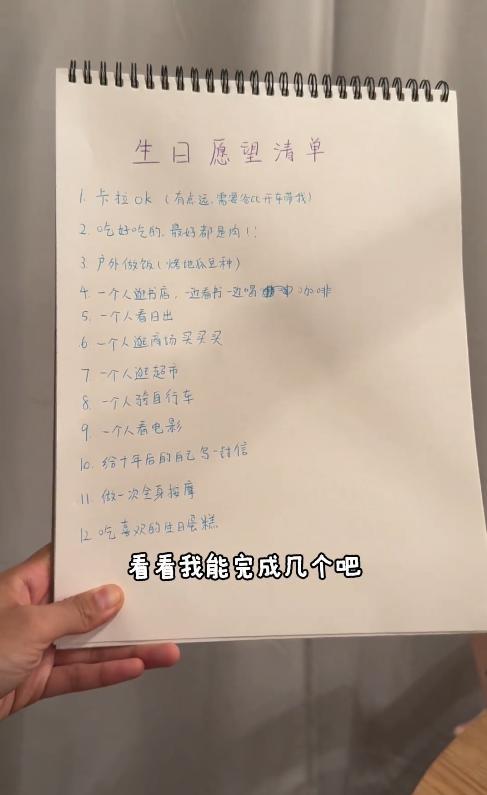 生日愿望清单
1. 卡拉ok（有点远,需要爸爸开车带我）
2. 吃好吃的,最好都是肉!!
3. 户外做饭(烤地瓜那种)
4. 一个人逛书店,一边看书一边喝咖啡
5. 一个人看日出
6. 一个人逛商场买买买
7. 一个人逛超市
8. 一个人骑自行车
9. 一个人看电影
10. 给十年后的自己写一封信
11. 做一次全身按摩
12. 吃喜欢的生日蛋糕
看看我能完成几个吧